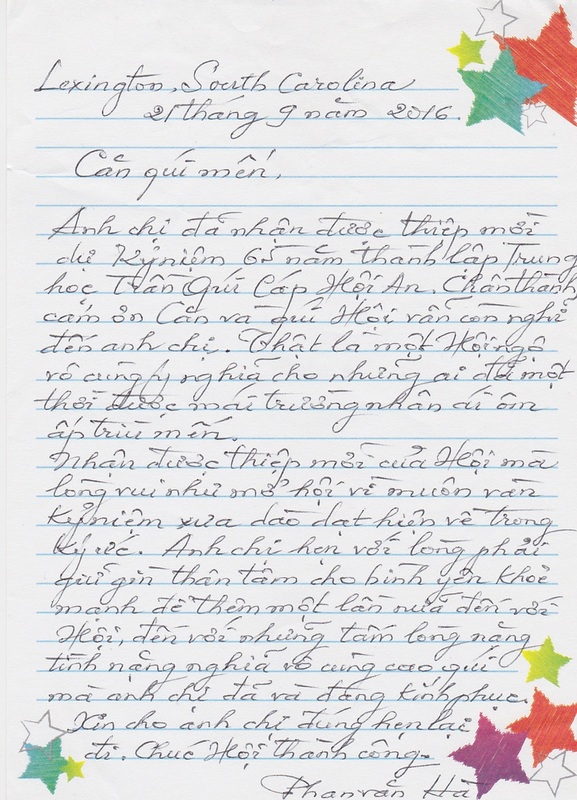 Lexington, South Carolina
21 tháng 9 năm 2016.
Cẩn quí mến,
Anh chị đã nhận được thiệp mời
dự Kỷ niệm 65 năm thành lập Trung
học Trần Quí Cáp Hội An. Chân thành
cám ơn Cẩn và quí Hội vẫn còn nghĩ
đến anh chị. Thật là một Hội ngộ
vô cùng ý nghĩa cho những ai đã một
thời được mái trường nhân ái ôm
ấp trìu mến.
Nhận được thiệp mời của Hội mà
lòng vui như mở hội vì muôn vàn
kỷ niệm xưa dào dạt hiện về trong
ký ức. Anh chị hẹn với lòng phải
giữ gìn thân tâm cho bình yên khoẻ
mạnh để thêm một lần nữa đến với
Hội, đến với những tấm lòng nặng
tình nặng nghĩa vô cùng cao quí
mà anh chị đã và đang kính phục.
Xin cho anh chị đừng hẹn lại
đi. Chúc Hội thành công.
Phan văn Hà